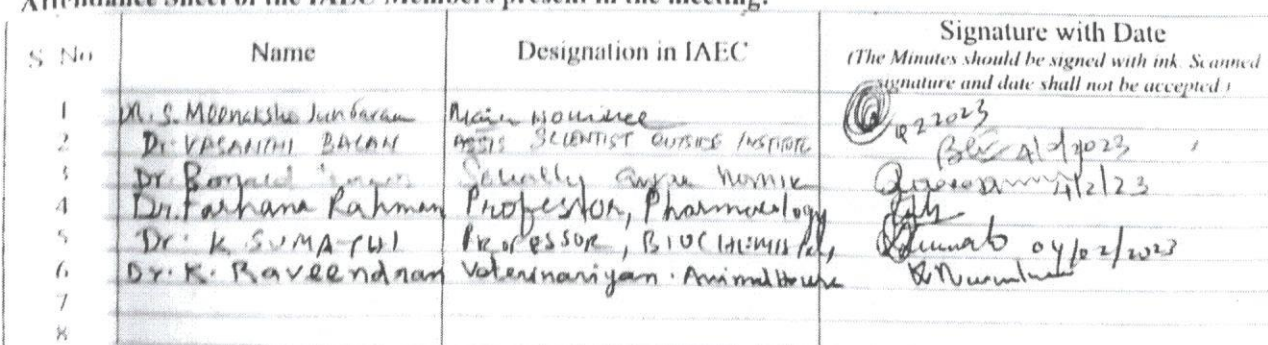 Attendance Sheet of the IAEC Members present in the meeting:
S No Name Designation in IAEC Signature with Date
(The Minutes should be signed with ink. Scanned signature and date shall not be accepted)
1 M. S. Meenakshi Sundaram Main Nominee 2023
2 Dr. VASANTHI BALAN SCIENTIST OUTSIDE INSTITUTE 4/2/2023
3 Dr. Socially Aware Nominee 4/2/23
4 Dr. Farhana Rahman Professor, Pharmacology
5 Dr. K. SUMATHI PROFESSOR, BIOCHEMISTRY, 04/02/2023
6 Dr. K. Raveendran Veterinariyan. Animal House
7
8